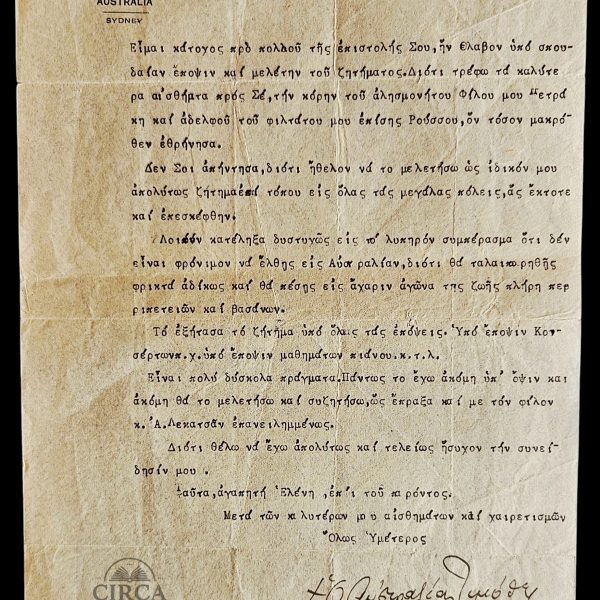 AUSTRALIA
SYDNEY
Εἶμαι κάτοχος πρὸ πολλοῦ τῆς ἐπιστολῆς Σου, ἣν ἔλαβον ὑπὸ σπου-
δαίαν ἔποψιν καὶ μελέτην τοῦ ζητήματος. Διότι τρέφω τὰ καλύτε
ρα αἰσθήματα πρὸς Σέ, τὴν κόρην τοῦ ἀλησμονήτου Φίλου μου Μετρά
κη καὶ ἀδελφοῦ τοῦ φιλτάτου μου ἐπίσης Ρούσσου, ὃν τόσον μακρό-
θεν ἐθρήνησα.
Δεν Σοι ἀπήντησα, διότι ἤθελον νὰ το μελετήσω ὡς ἰδικόν μου
ἀπολύτως ζήτημα ἐπὶ τόπου εἰς ὅλας τὰς μεγάλας πόλεις, ἃς ἔκτοτε
καὶ ἐπεσκέφθην.
Λοιπὸν κατέληξα δυστυχῶς εἰς τὸ λυπηρόν συμπέρασμα ὅτι δέν
εἶναι φρόνιμον νὰ ἔλθῃς εἰς Αὐστραλίαν, διότι θὰ ταλαιπωρηθῇς
φρικτά ἀδίκως καὶ θὰ πέσῃς εἰς ἄχαριν ἀγῶνα της ζωῆς πλήρη περ
ριπετειῶν καὶ βασάνων.
Τό ἐξήτασα τό ζήτημα ὑπό ὅλας τάς ἐπόψεις. Ὑπό ἔποψιν Κον-
σέρτων π.χ. ὑπό ἔποψιν μαθημάτων πιάνου. κ.τ.λ.
Εἶναι πολύ δύσκολα πράγματα. Πάντως το ἔχω ἀκόμη ὑπ' ὄψιν και
ἀκόμη θά το μελετήσω καί συζητήσω, ὡς ἔπραξα καί με τόν φίλον
κ. Ἀ. Λεκατσᾶν ἐπανειλημμένως.
Διότι θέλω νά ἔχω ἀπολύτως καί τελείως ἥσυχον τήν συνεί-
δησίν μου .
Ταῦτα, ἀγαπητή Ἑλένη , ἐπὶ τοῦ παρόντος.
Μετά τῶν καλυτέρων μου αἰσθημάτων καί χαιρετισμῶν
Ὅλως Ὑμέτερος
CIRCA